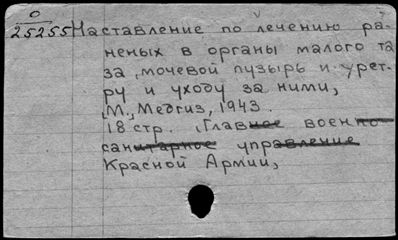 О
25255 Наставление по лечению ра-
неных в органы малого та
за, мочевой пузырь и урет-
ру и уходу за ними,
М., Медгиз, 1943.
18 стр. (Главное военно
санитарное управление
Красной Армии,